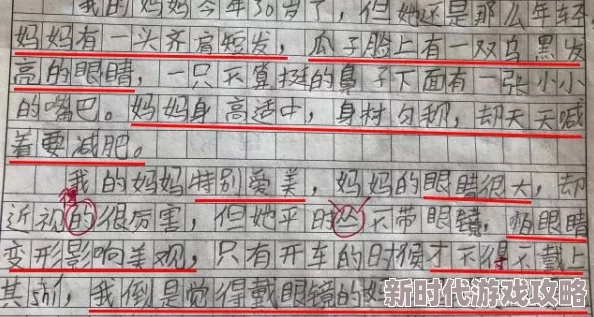 我的妈妈今年30岁了，但她还是那么年轻
妈妈有一头齐肩短发，瓜子脸上有一双乌黑发
亮的眼睛，一只不算挺的鼻子下面有一张小小
的嘴巴。妈妈身高适中，身材匀称，却天天喊
着要减肥。
我的妈妈特别爱美，妈妈的眼睛很大，却
得
近视的很厉害，但她平时从不带眼镜，怕眼睛
变形影响美观，只有开车的时候才不得不戴上
其实，我倒是觉得戴眼镜的妈
新时代游戏攻略